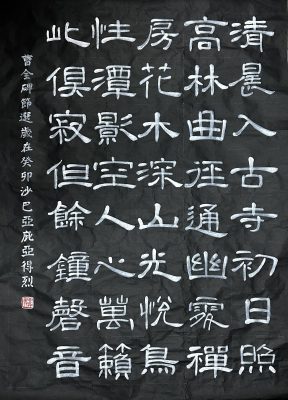 清晨入古寺初日照
高林曲徑通幽處禪
房花木深山光悅鳥
性潭影空人心萬籟
此俱寂但餘鐘磬音
曹全碑節選歲在癸卯沙巴亞庇亞得烈